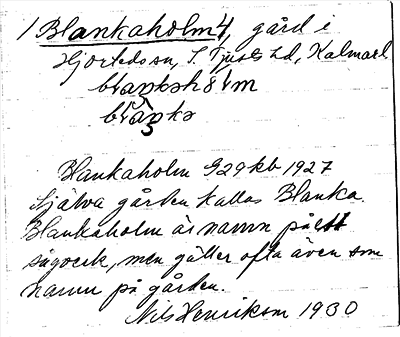 1 Blankaholm 4, gård i
Hjorteds sn, S. Tjusts hd, Kalmar l
Blankaholm G 29 kb 1927
Själva gården kallas Blanka.
Blankaholm är namn på ett
sågverk, men gäller ofta även som
namn på gården.
Nils Henrikson 1930